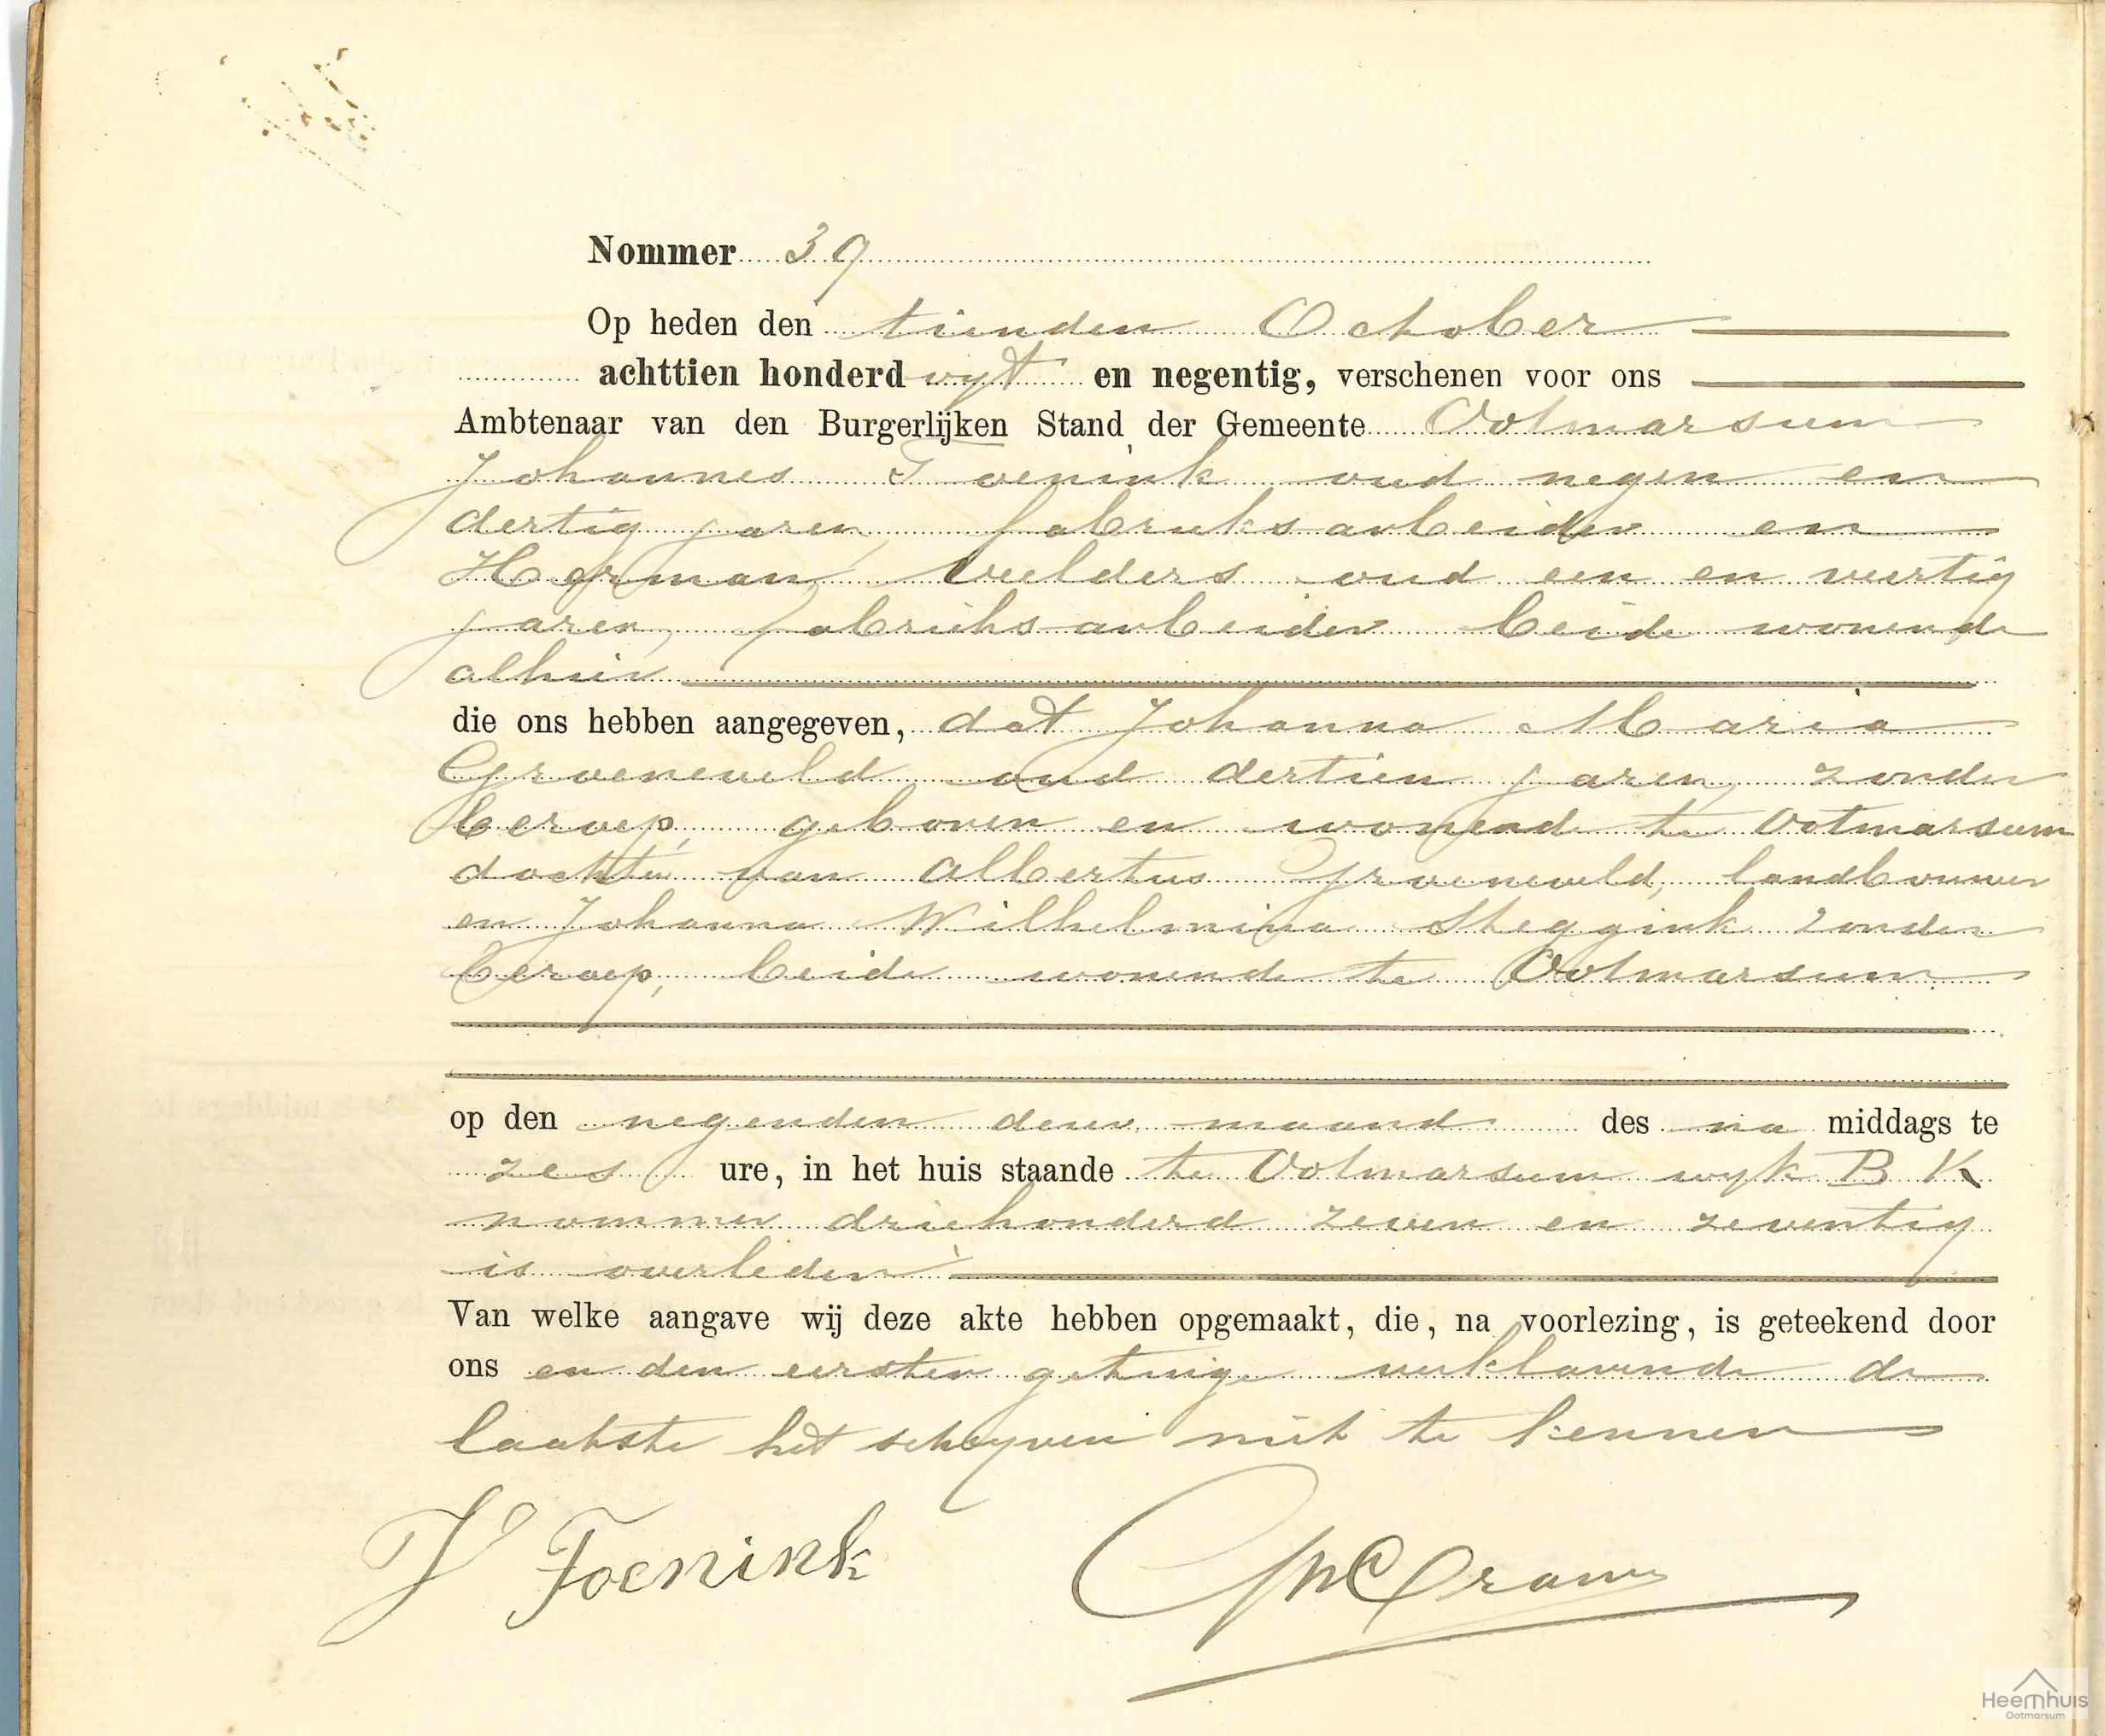 Nommer 39
Op heden den tienden October
achttien honderd vyf en negentig, verschenen voor ons
Ambtenaar van den Burgerlijken Stand der Gemeente Ootmarsum
Johannes Foenink oud negen en
dertig jaren, fabrieksarbeider en
Herman Velders oud een en veertig
jaren, fabrieksarbeider beide wonende
alhier
die ons hebben aangegeven, dat Johanna Maria
Groeneveld oud dertien jaren, zonder
beroep, geboren en wonende te Ootmarsum
dochter van Albertus Groeneveld, landbouwer
en Johanna Wilhelmina Steggink zonder
beroep, beide wonende te Ootmarsum
op den negenden dezer maand des na middags te
zes ure, in het huis staande te Ootmarsum wyk B K
nommer driehonderd zeven en zeventig
is overleden
Van welke aangave wij deze akte hebben opgemaakt, die, na voorlezing, is geteekend door
ons en den eersten getuige verklarende de
laatste het schryven niet te kennen
J Foenink
Heemhuis
Ootmarsum